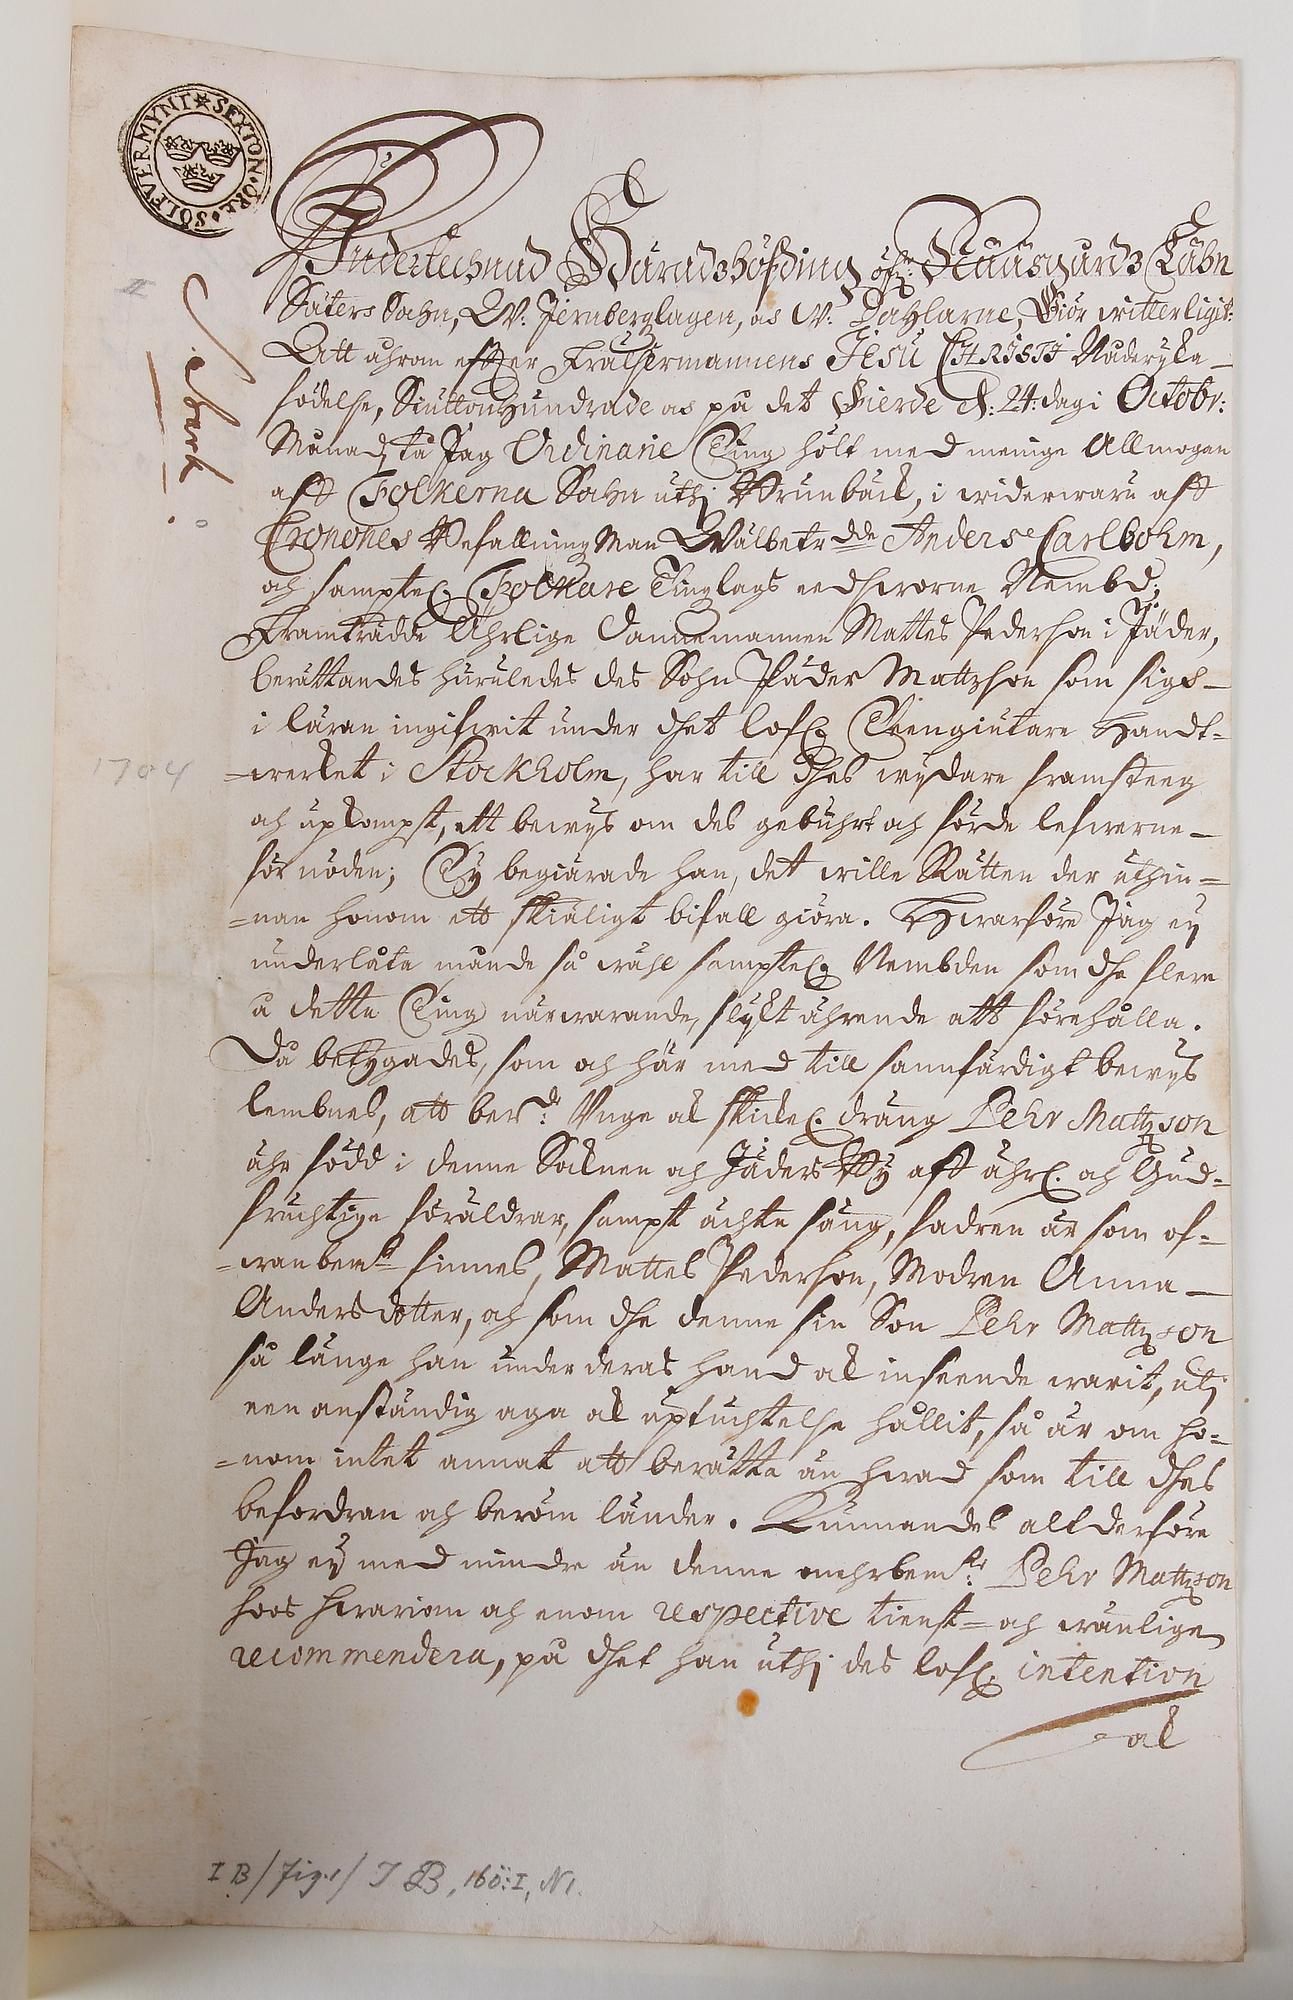 SEXTON·ÖRE·SÖLFVERMYNT
Undertechnad Häradzhöfding öf:r Näässgårdz Lähn
Säters Sohn, W: Jernberglagen, as W: Dahlarne, Giör witterligit:
Att åhrom efter Frälsermannens Jesu CHRISTI Nåderyka
födelse, Siutton Hundrade as på det Fierde d: 24: dag i Octobr:
Månad, tå Jag Ordinarie Ting hölt med menige Allmogen
aff Folkerna Sohn uthj Brunbäck, i widerwaru aff
Cronones Befallning Man Wälbetrdde Anders Carlbohm,
och samptel. Folkare Tinglags eedsworne Nembd;
Framträdde Ährlige Dannemannen Mattes Pedersson i Jäder,
berättandes huruledes des Sohn Päder Mattzson som sigh
i läran ingifwit under dhet lofl. Teengiutare Handt-
-werket i Stockholm, har till dhes wydare framsteeg
och upkompst, ett bewys om des gebuhrt och förde lefwerne
för nöden; Ty begiärade han, det wille Rätten der uthin-
=nan honom ett skiäligt bifall giöra. Hwarföre Jag ey
underlåta månde så wähl samptel. Nembden som dhe flere
å dette Ting närwarande, slykt ährende att förehålla.
Då betygades, som och här med till sannfärdigt bewys
lembnes, att ber:de Unge ok skickel. dräng Pehr Mattzson
ähr född i denne Soknen och Jäders By aff ährl. och Gud=
fruchtige föräldrar, sampt ächta säng, fadren är som of=
=wanbem:t finnes, Mattes Pedersson, Modren Anna
Andersdotter, och som dhe denne sin Son Pehr Mattzson
så länge han under deras hand ok inseende warit, utj
een anständig aga ok uptuchtelse hållit, så är om ho=
=nom intet annat att berätta än hwad som till dhes
befordran och beröm länder. Kunnandes alt derföre
Jag ey med mindre än denne mehrbem:te Pehr Mattzson
hoos hwariom och enom respective tienst= och wänligen
recommendera, på dhet han uthj des lofl. intention
ok
1704
I B/Fig.1/ I B, 160:I, N1.